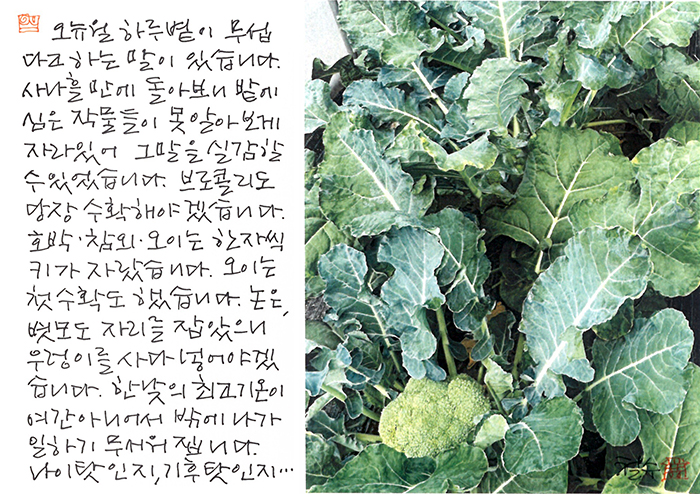 오뉴월 하루볕이 무섭
다고 하는 말이 있습니다.
사나흘 만에 돌아보니 밭에
심은 작물들이 못 알아보게
자라있어 그말을 실감할
수 있었습니다. 브로콜리도
당장 수확해야겠습니다.
호박·참외·오이는 한자씩
키가 자랐습니다. 오이는
첫 수확도 했습니다. 논은,
볏모도 자리를 잡았으니
우렁이를 사다 넣어야겠
습니다. 한낮의 최고기온이
여간 아니어서 밖에 나가
일하기 무서워집니다.
나이탓인지, 기후탓인지…
철수